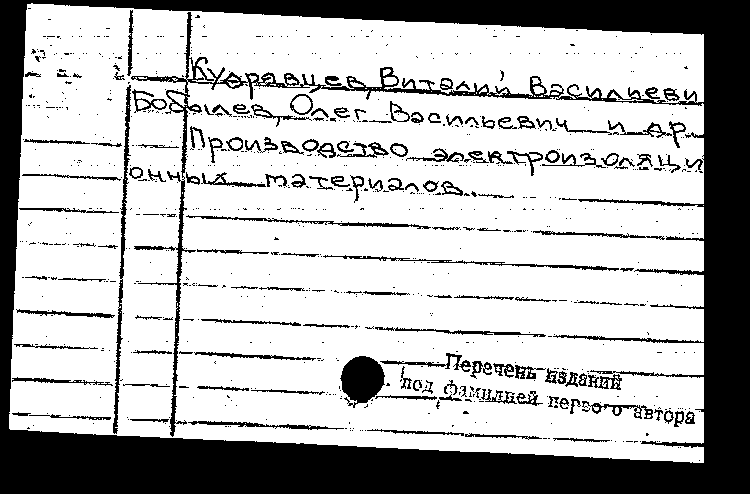 Кудрявцев, Виталий Василиеви
Бобылев, Олег Васильевич и др.
Производство электроизоляци
онных материалов.
Перечень изданий
под фамилией первого автора